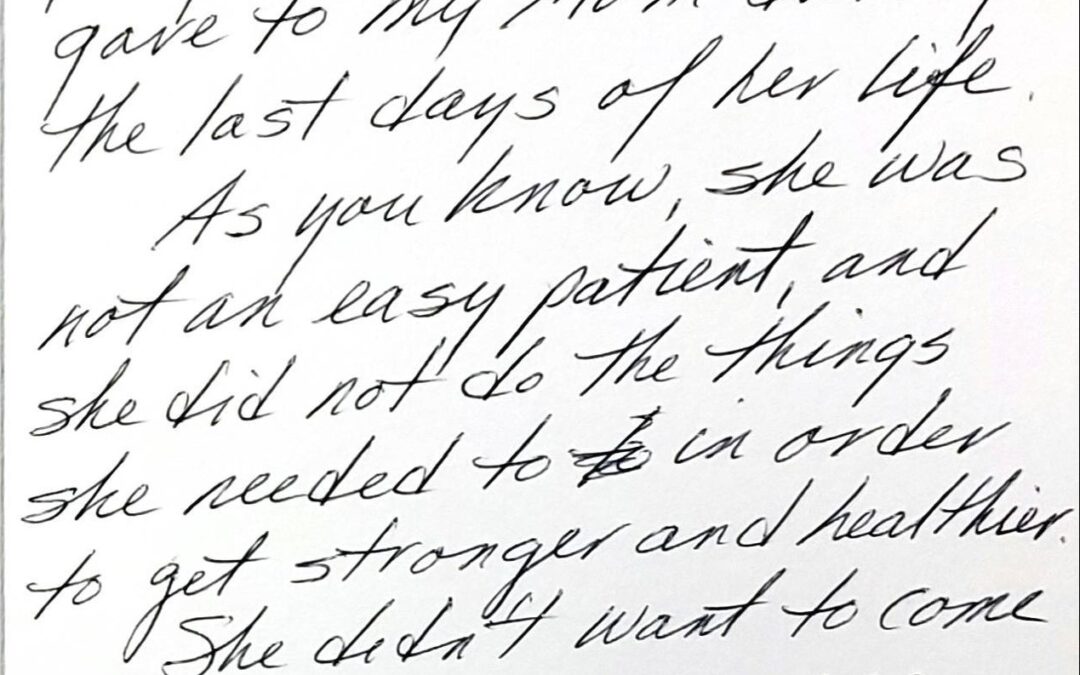 gave to my Mom during
the last days of her life.
As you know, she was
not an easy patient, and
she did not do the things
she needed to in order
to get stronger and healthier.
She didn't want to come